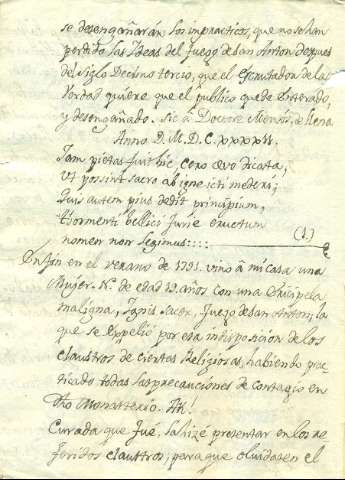 se desengañarán los impracticos, que no se han
perdido las Ideas del fuego de San Anton despues
del Siglo Decimo tercio, que el Escrutador de la
Verdad quiere que el publico quede enterado,
y desengañado. Sic à Docere Mensis de
Anno. D. M. D. C. XXXXVI.
Jam pietas fuit hic cero ævo dicata,
Ut possint sacro ab igne icti mederi;
Quis autem pius dedit principium,
Tormenti bellici furie eructum
nomen non legimus:::: (1.)
En fin en el verano de 1791. vino à mi casa una
Muger. R. de edad 19. años con una Erisipela
maligna, Ignis Sacer, fuego de San Anton, la
que se expelió por esta indisposición de los
claustros de ciertas Religiosas, habiendo prac-
ticado todas las precauciones de Contagio en
dho Monasterio. Ah!
Curada que fué, la hize presentar en los re-
feridos claustros; para que olvidasen el